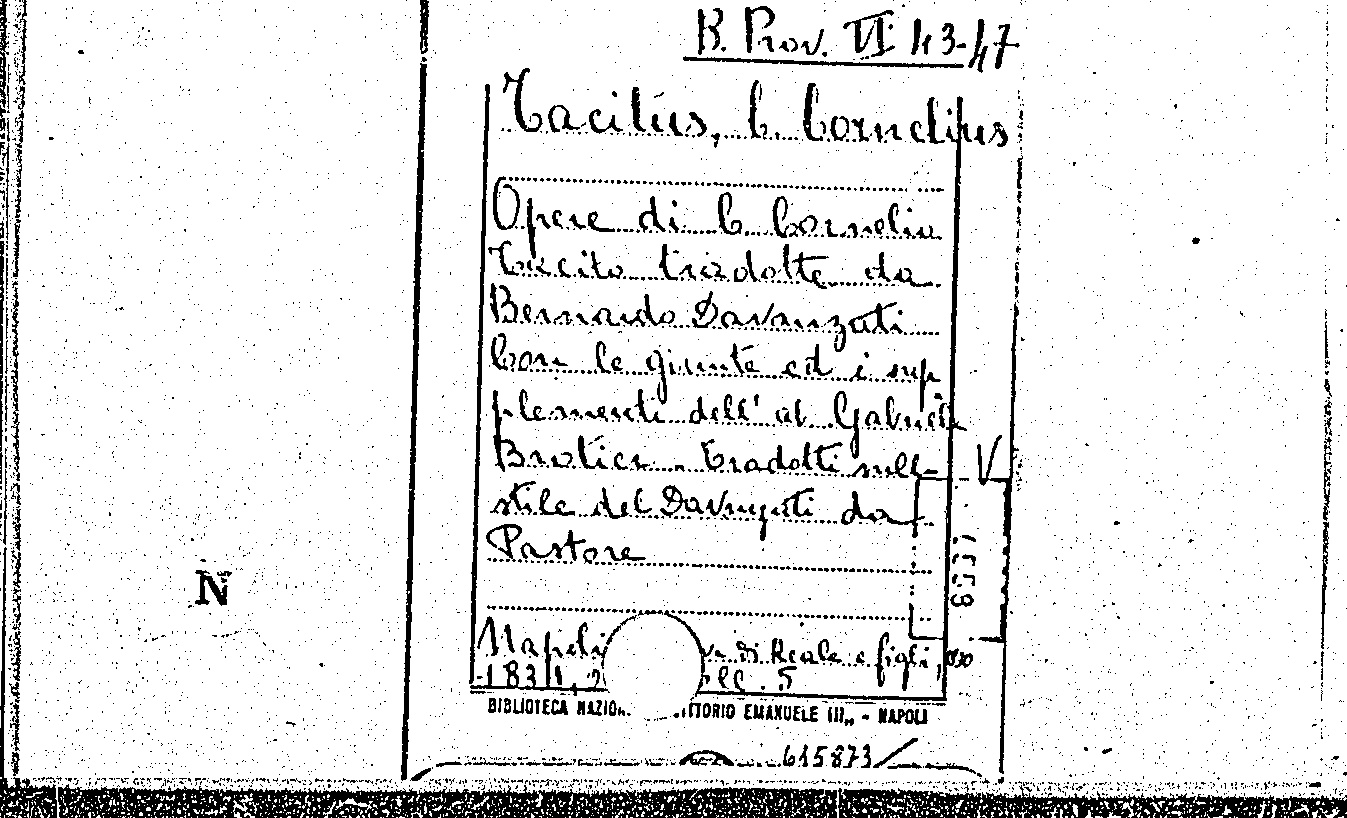 B. Prov. VI 43-47
Tacitus, C. Cornelius
Opere di C Cornelio
Tacito tradotte da
Bernardo Davanzati
Con le giunte ed i sup
plementi dell' ab Gabriele
Brotier. Tradotti nello
stile del Davanzati da
Pastore
V
N
Napoli di Reale e figli,
1831, 5
BIBLIOTECA NAZION VITTORIO EMANUELE III,, - NAPOLI
615873/